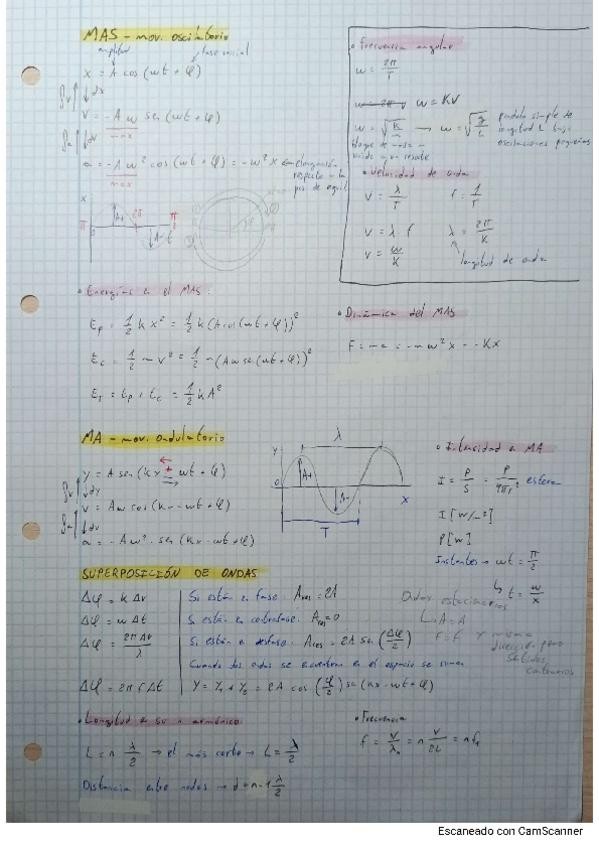 MAS - mov. oscilatorio
amplitud
fase inicial
x = A cos (ωt + φ)
v = -A ω sen (ωt + φ)
max
a = -A ω² cos (ωt + φ) = -ω² x ← elongación
respecto a la
pos de equil
• Frecuencia angular
ω = 2π/T
ω = KV
ω = √K → ω = √g/L
péndulo simple de
longitud L bajo
oscilaciones pequeñas
• Velocidad de onda
V = λ/T f = 1/T
V = λ f λ = 2π/K
V = ω/K
longitud de onda
• Energías en el MAS:
Ep = 1/2 k x² = 1/2 k (A cos(ωt + φ))²
Ec = 1/2 m v² = 1/2 m (Aω sen(ωt + φ))²
ET = Ep + Ec = 1/2 k A²
• Dinámica del MAS
F = ma = -mω² x = -Kx
MA - mov. ondulatorio
y = A sen (kx ± ωt + φ)
v = Aω cos (kx - ωt + φ)
a = -Aω² sen (kx - ωt + φ)
Y
λ
A+
A-
0
X
T
• Intensidad en MA
I = P/S = P/4πr² esfera
I [W/m²]
P [W]
Instantes → ωt = π/2
SUPERPOSICIÓN DE ONDAS
Δφ = k Δv
Δφ = ω Δt
Δφ = 2π Δv/λ
Δφ = 2π f Δt
Si están en fase: Ares = 2A
Si están en contrafase: Ares = 0
Si están en desfase: Ares = 2A sen (Δφ/2)
Cuando dos ondas se encuentran en el espacio se suman
Y = Y₁ + Y₂ = 2A cos (φ/2) sen (kx - ωt + φ/2)
Ondas estacionarias
A = A
F = F y misma
dirección pero
sentidos
contrarios
• Longitud en su n armónico
L = n λ/2 → el más corto → L = λ/2
Distancia entre nodos → d = n-1 λ/2
• Frecuencia
f = V/λn = n V/2L = n f₁
Escaneado con CamScanner